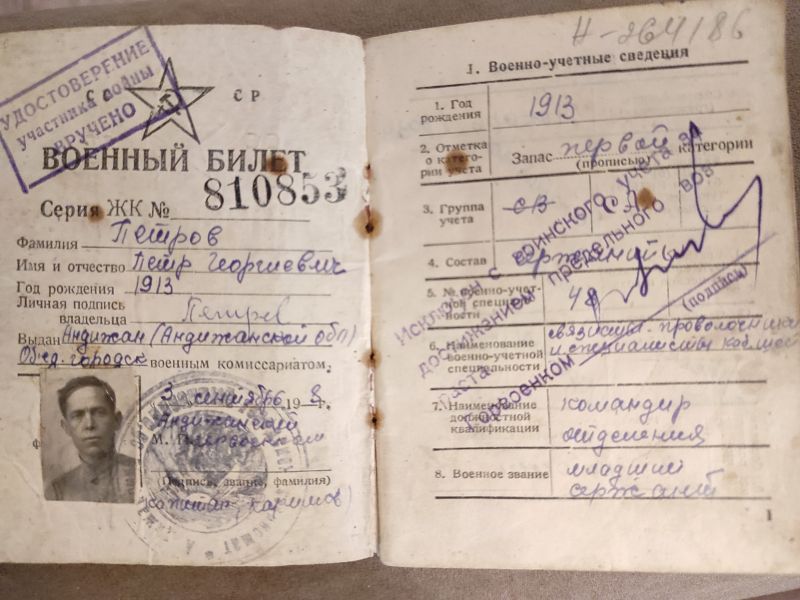 УДОСТОВЕРЕНИЕ
Участника войны
ВРУЧЕНО
С СР
ВОЕННЫЙ БИЛЕТ
Серия ЖК № 810853
Фамилия Петров
Имя и отчество Петр Георгиевич
Год рождения 1913
Личная подпись
владельца Петров
Выдан Андижан (Андижанской обл)
Об'ед. городск военным комиссариатом,
3 сентябрь 19
Андижанский
М. П.
(Подпись, звание, фамилия)
Каримов)
Н-264/86
1. Военно-учетные сведения
1. Год
рождения
1913
2. Отметка
о катего-
рии учета
Запас первой категории
(прописью)
3. Группа
учета
СВ СА
4. Состав
сержанты
5. № военно-учет-
ной специаль-
ности
48
6. Наименование
военно-учетной
специальности
связисты-проволочники
и специалисты
7. Наименование
должностной
квалификации
командир
отделения
8. Военное звание
младший
сержант
Исключен с воинского учета за
достижением предельного воз-
раста
Горвоенком
(подпись)
1